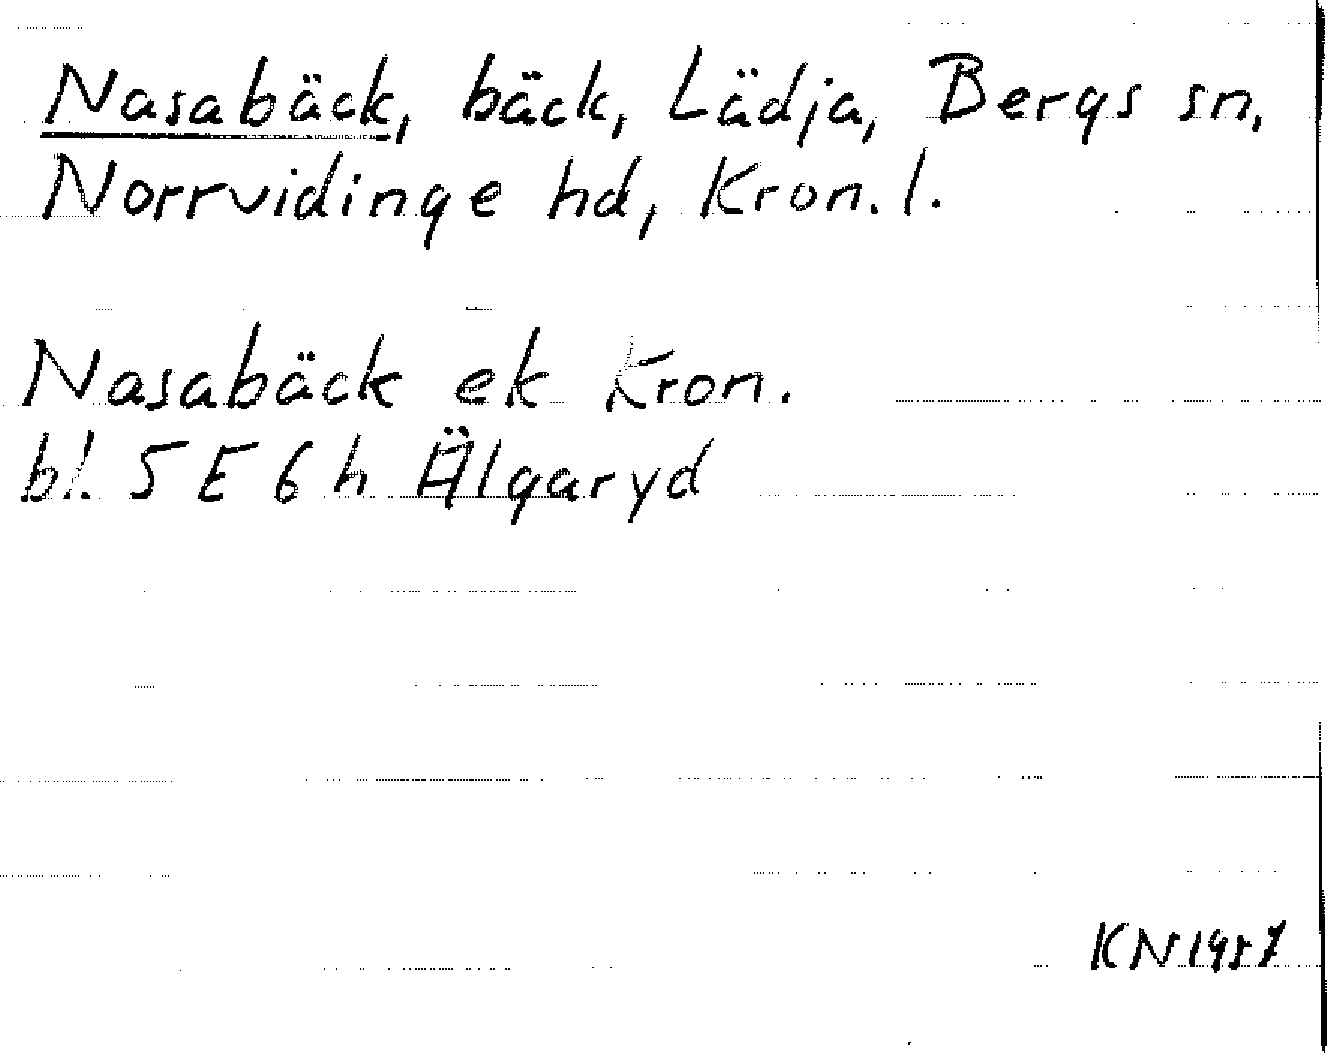 Nasabäck, bäck, Lädja, Bergs sn,
Norrvidinge hd, Kron. l.
Nasabäck ek Kron.
bl. 5 E 6 h Älgaryd
KN 1987